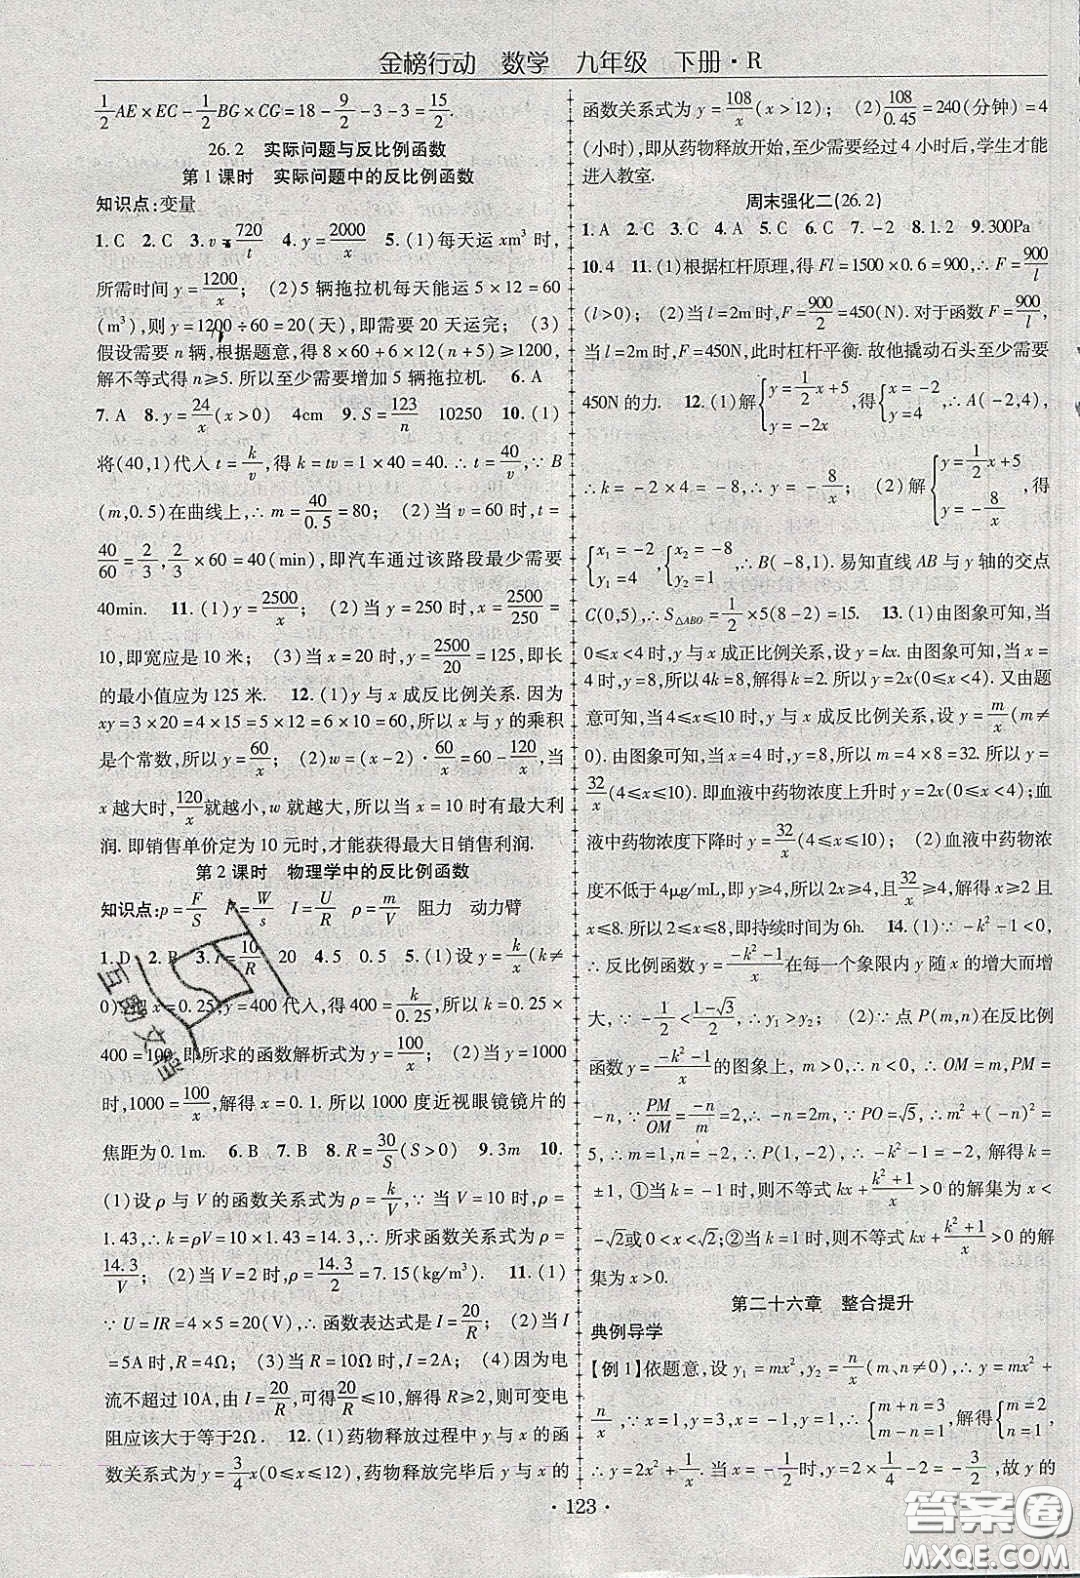 金榜行动 数学 九年级 下册·R
1/2 AE×EC−1/2 BG×CG=18−9/2−3−3=15/2.
26.2 实际问题与反比例函数
第1课时 实际问题中的反比例函数
知识点:变量
1.C 2.C 3.v=720/t 4.y=2000/x 5.(1)每天运xm³时,
所需时间y=1200/x; (2)5辆拖拉机每天能运5×12=60
(m³),则y=1200÷60=20(天),即需要20天运完; (3)
假设需要n辆,根据题意,得8×60+6×12(n+5)≥1200,
解不等式得n≥5.所以至少需要增加5辆拖拉机. 6.A
7.A 8.y=24/x(x>0) 4cm 9.S=123/n 10250 10.(1)
将(40,1)代入t=k/v,得k=tv=1×40=40.∴t=40/v,∵B
(m,0.5)在曲线上,∴m=40/0.5=80; (2)当v=60时,t=
40/60=2/3,2/3×60=40(min),即汽车通过该路段最少需要
40min. 11.(1)y=2500/x; (2)当y=250时,x=2500/250=
10,即宽应是10米; (3)当x=20时,y=2500/20=125,即长
的最小值应为125米. 12.(1)y与x成反比例关系.因为
xy=3×20=4×15=5×12=6×10=60,所以x与y的乘积
是个常数,所以y=60/x; (2)w=(x−2)·60/x=60−120/x,当
x越大时,120/x就越小,w就越大,所以当x=10时有最大利
润.即销售单价定为10元时,才能获得最大日销售利润.
第2课时 物理学中的反比例函数
知识点:p=F/S F=W/s I=U/R ρ=m/V 阻力 动力臂
1.D 2.B 3.I=10/R 20 4.0.5 5.(1)设y=k/x(k≠
0),把x=0.25,y=400代入,得400=k/0.25,所以k=0.25×
400=100,即所求的函数解析式为y=100/x; (2)当y=1000
时,1000=100/x,解得x=0.1.所以1000度近视眼镜镜片的
焦距为0.1m. 6.B 7.B 8.R=30/S(S>0) 9.3m 10.
(1)设ρ与V的函数关系式为ρ=k/V,∵当V=10时,ρ=
1.43,∴k=ρV=10×1.43=14.3,∴所求函数关系式为ρ=
14.3/V; (2)当V=2时,ρ=14.3/2=7.15(kg/m³). 11.(1)
∵U=IR=4×5=20(V),∴函数表达式是I=20/R; (2)当I
=5A时,R=4Ω; (3)当R=10Ω时,I=2A; (4)因为电
流不超过10A,由I=20/R,可得20/R≤10,解得R≥2,则可变电
阻应该大于等于2Ω. 12.(1)药物释放过程中y与x的函
数关系式为y=3/4 x(0≤x≤12),药物释放完毕后y与x的
函数关系式为y=108/x(x>12); (2)108/0.45=240(分钟)=4
(小时),即从药物释放开始,至少需要经过4小时后,学生才能
进入教室.
周末强化二(26.2)
1.A 2.C 3.C 4.A 5.C 6.C 7.−2 8.1.2 9.300Pa
10.4 11.(1)根据杠杆原理,得Fl=1500×0.6=900,∴F=900/l
(l>0); (2)当l=2m时,F=900/2=450(N).对于函数F=900/l,
当l=2m时,F=450N,此时杠杆平衡.故他撬动石头至少需要
450N的力. 12.(1)解{y=1/2 x+5 y=−2x,得{x=−2 y=4,∴A(−2,4),
∴k=−2×4=−8,∴y=−8/x; (2)解{y=1/2 x+5 y=−8/x,得
{x₁=−2 y₁=4,{x₂=−8 y₂=1,∴B(−8,1).易知直线AB与y轴的交点
C(0,5),∴S△ABO=1/2×5(8−2)=15. 13.(1)由图象可知,当
0≤x<4时,y与x成正比例关系,设y=kx.由图象可知,当x=
4时,y=8,所以4k=8,解得k=2.所以y=2x(0≤x<4).又由题
意可知,当4≤x≤10时,y与x成反比例关系,设y=m/x(m≠
0).由图象可知,当x=4时,y=8,所以m=4×8=32.所以y=
32/x(4≤x≤10).即血液中药物浓度上升时y=2x(0≤x<4);血
液中药物浓度下降时y=32/x(4≤x≤10); (2)血液中药物浓
度不低于4μg/mL,即y≥4,所以2x≥4,且32/x≥4,解得x≥2,且x
≤8.所以2≤x≤8,即持续时间为6h. 14.(1)∵−k²−1<0,
∴反比例函数y=−k²−1/x在每一个象限内y随x的增大而增
大,∵−1/2<1−√3/2,∴y₁>y₂; (2)∵点P(m,n)在反比例
函数y=−k²−1/x的图象上,m>0,∴n<0,∴OM=m,PM=
−n,∵PM/OM=−n/m=2,∴−n=2m,∵PO=√5,∴m²+(−n)²=
5,∴m=1,n=−2,∴P(1,−2),∴−k²−1=−2,解得k=
±1,①当k=−1时,则不等式kx+k²+1/x>0的解集为x<
−√2或0<x<√2;②当k=1时,则不等式kx+k²+1/x>0的解
集为x>0.
第二十六章 整合提升
典例导学
【例1】依题意,设y₁=mx²,y₂=n/x(m、n≠0),∴y=mx²+
n/x,∵x=1,y=3,x=−1,y=1,∴{m+n=3 m−n=1,解得{m=2 n=1,
∴y=2x²+1/x,当x=−1/2时,y=2×1/4−2=−3/2,故y的
·123·
答案圈
MXQE.COM